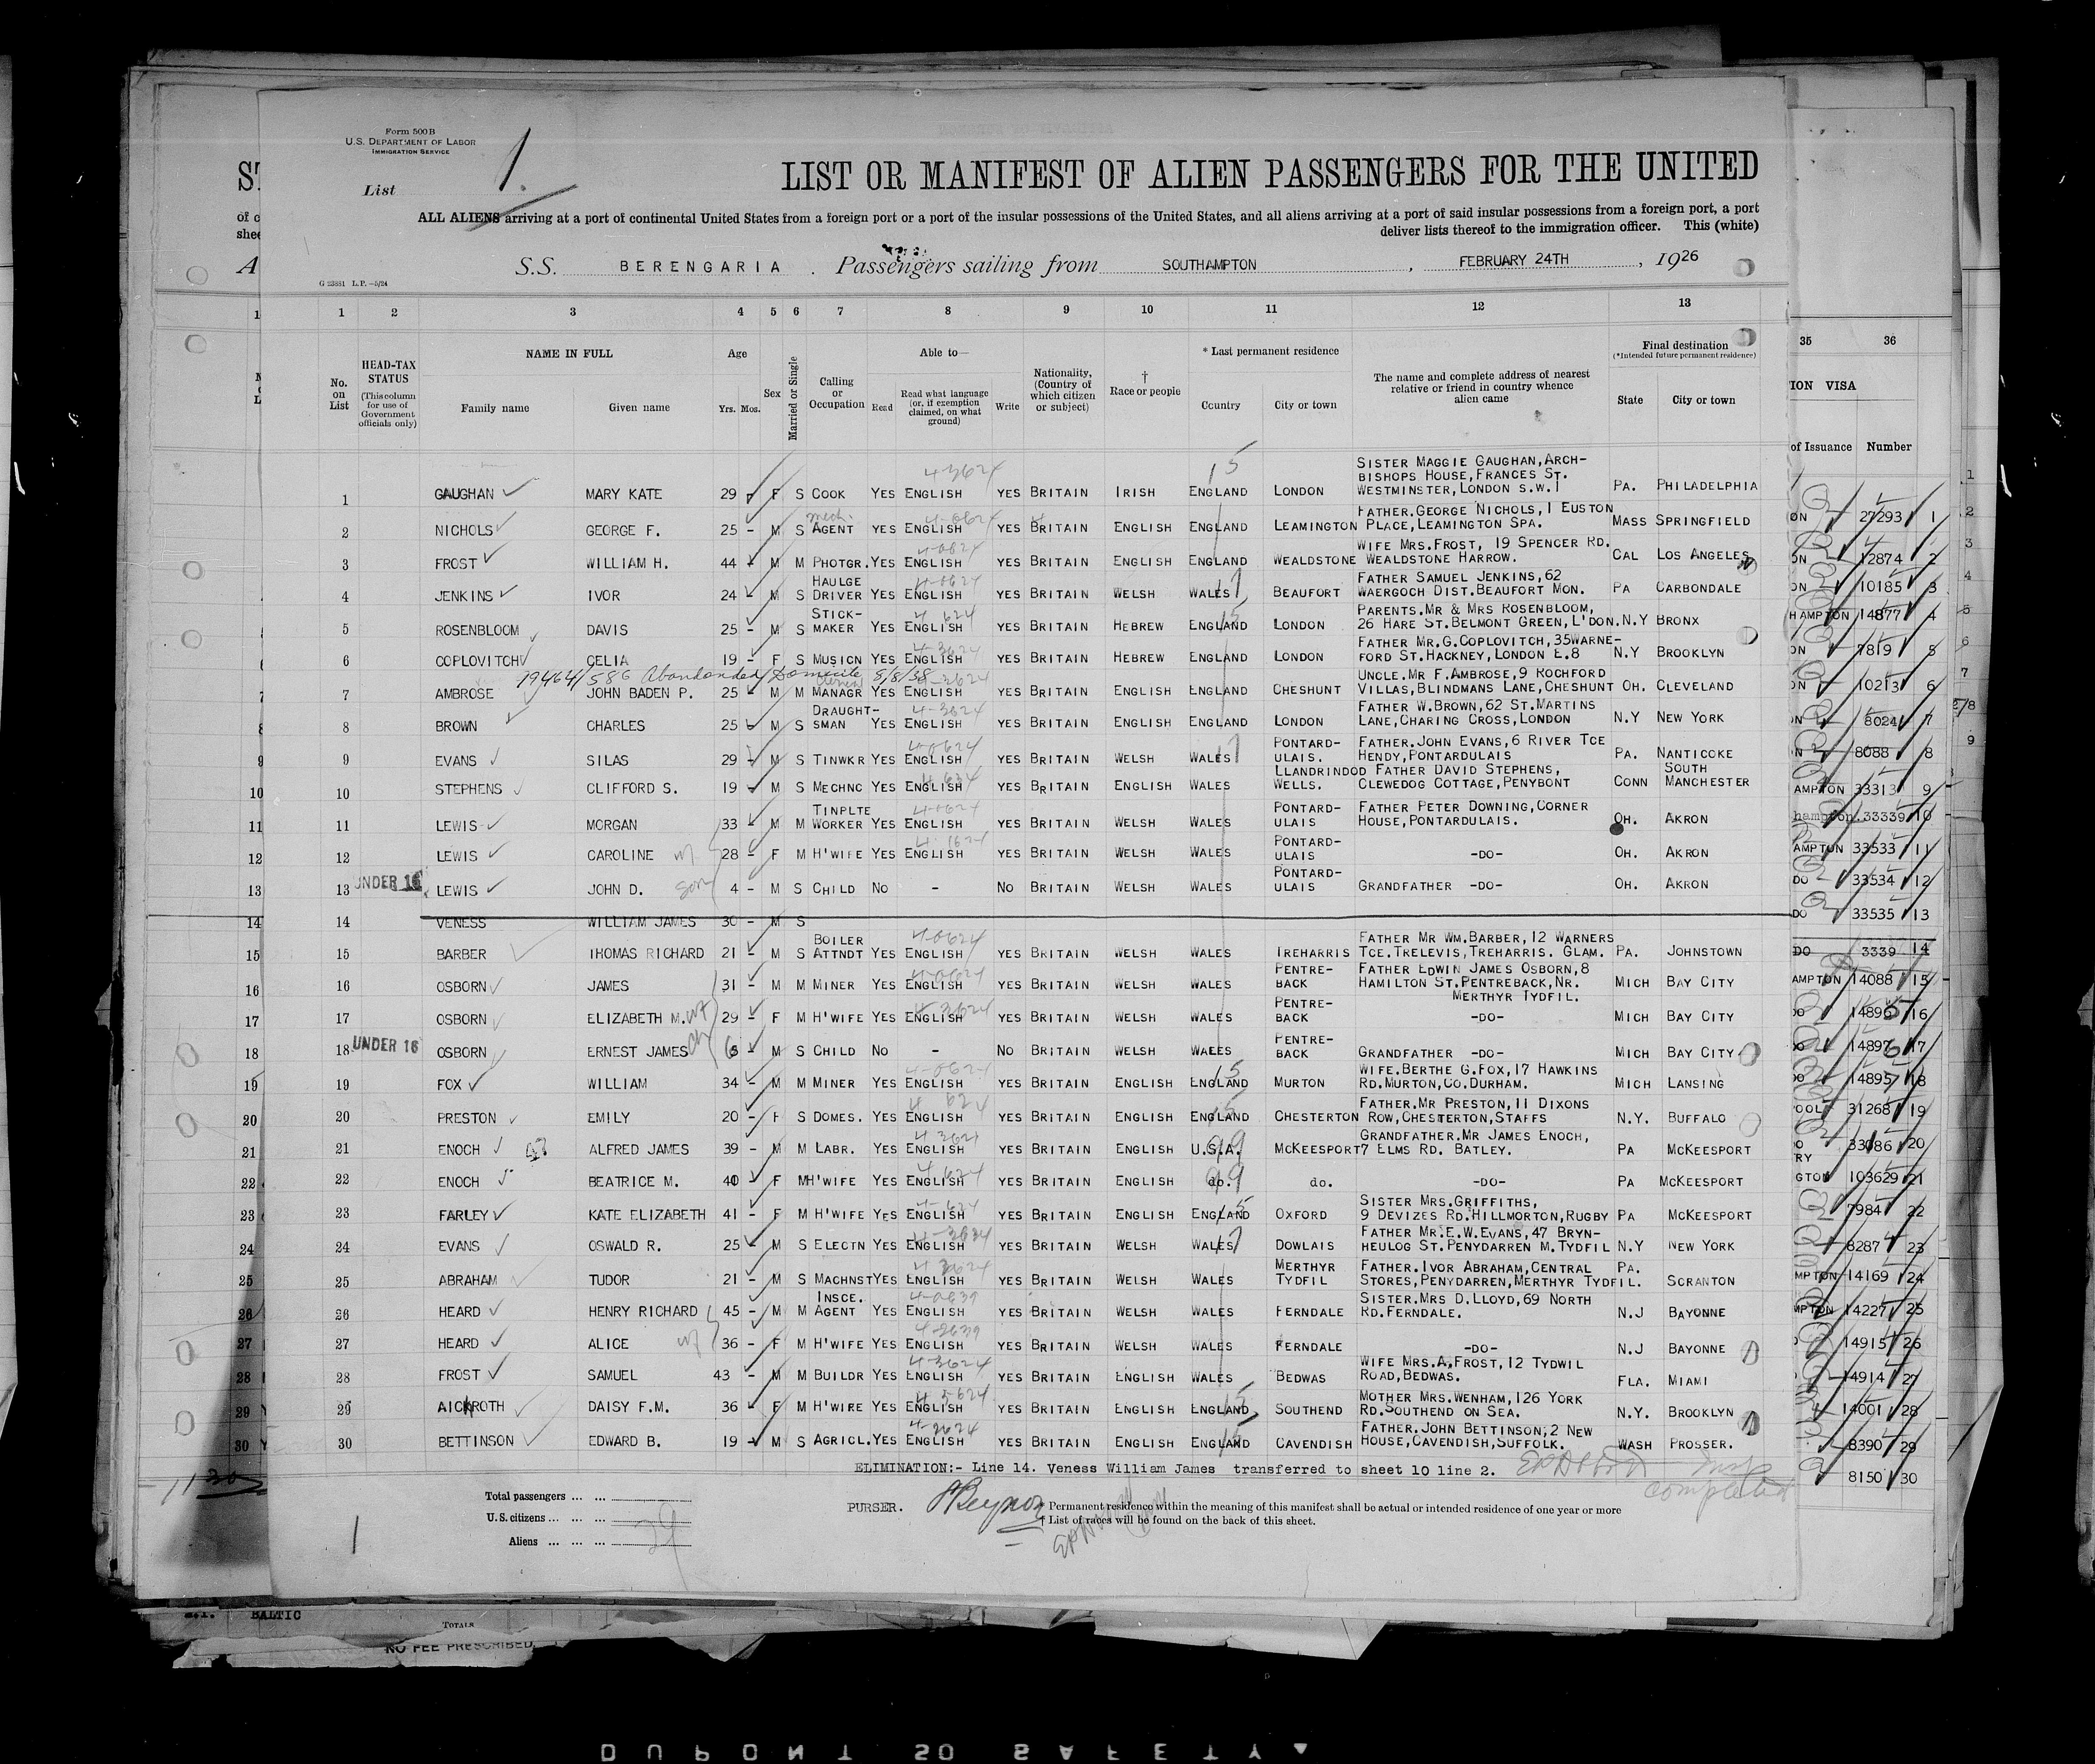 Form 500B
U.S. DEPARTMENT OF LABOR
IMMIGRATION SERVICE
List 1.
LIST OR MANIFEST OF ALIEN PASSENGERS FOR THE UNITED
ALL ALIENS arriving at a port of continental United States from a foreign port or a port of the insular possessions of the United States, and all aliens arriving at a port of said insular possessions from a foreign port, a port
deliver lists thereof to the immigration officer. This (white)
S.S. BERENGARIA . Passengers sailing from SOUTHAMPTON , FEBRUARY 24TH , 1926
G 23881 L.P.—5/24
1 2 3 4 5 6 7 8 9 10 11 12 13 35 36
No. on List
HEAD-TAX STATUS (This column for use of Government officials only)
NAME IN FULL
Family name Given name
Age Yrs. Mos.
Sex
Married or Single
Calling or Occupation
Able to—
Read Read what language (or, if exemption claimed, on what ground) Write
Nationality, (Country of which citizen or subject)
† Race or people
* Last permanent residence
Country City or town
The name and complete address of nearest relative or friend in country whence alien came
Final destination (*Intended future permanent residence)
State City or town
ION VISA
of Issuance Number
1 GAUGHAN MARY KATE 29 F S COOK YES ENGLISH YES BRITAIN IRISH ENGLAND LONDON SISTER MAGGIE GAUGHAN, ARCH-BISHOPS HOUSE, FRANCES ST. WESTMINSTER, LONDON S.W.1 PA. PHILADELPHIA
2 NICHOLS GEORGE F. 25 - M S AGENT YES ENGLISH YES BRITAIN ENGLISH ENGLAND LEAMINGTON FATHER.GEORGE NICHOLS, 1 EUSTON PLACE, LEAMINGTON SPA. MASS SPRINGFIELD
3 FROST WILLIAM H. 44 M M PHOTGR. YES ENGLISH YES BRITAIN ENGLISH ENGLAND WEALDSTONE WIFE MRS.FROST, 19 SPENCER RD. WEALDSTONE HARROW. CAL LOS ANGELES
4 JENKINS IVOR 24 M S HAULGE DRIVER YES ENGLISH YES BRITAIN WELSH WALES BEAUFORT FATHER SAMUEL JENKINS, 62 WAERGOCH DIST.BEAUFORT MON. PA CARBONDALE
5 ROSENBLOOM DAVIS 25 - M S STICK-MAKER YES ENGLISH YES BRITAIN HEBREW ENGLAND LONDON PARENTS.MR & MRS ROSENBLOOM, 26 HARE ST.BELMONT GREEN, L'DON. N.Y BRONX
6 COPLOVITCH CELIA 19 - F S MUSICN YES ENGLISH YES BRITAIN HEBREW ENGLAND LONDON FATHER MR.G.COPLOVITCH, 35WARNE-FORD ST.HACKNEY, LONDON E.8 N.Y BROOKLYN
79464/586 Abandoned Domicile 8/8/38
7 AMBROSE JOHN BADEN P. 25 M M MANAGR YES ENGLISH YES BRITAIN ENGLISH ENGLAND CHESHUNT UNCLE.MR F.AMBROSE, 9 ROCHFORD VILLAS, BLINDMANS LANE, CHESHUNT OH. CLEVELAND
8 BROWN CHARLES 25 M S DRAUGHT-SMAN YES ENGLISH YES BRITAIN ENGLISH ENGLAND LONDON FATHER W.BROWN, 62 ST.MARTINS LANE, CHARING CROSS, LONDON N.Y NEW YORK
9 EVANS SILAS 29 M S TINWKR YES ENGLISH YES BRITAIN WELSH WALES PONTARD-ULAIS. FATHER.JOHN EVANS, 6 RIVER TCE HENDY, PONTARDULAIS PA. NANTICOKE
10 STEPHENS CLIFFORD S. 19 M S MECHNC YES ENGLISH YES BRITAIN ENGLISH WALES LLANDRINDOD WELLS. FATHER DAVID STEPHENS, CLEWEDOG COTTAGE, PENYBONT CONN SOUTH MANCHESTER
11 LEWIS MORGAN 33 - M M TINPLTE WORKER YES ENGLISH YES BRITAIN WELSH WALES PONTARD-ULAIS FATHER PETER DOWNING, CORNER HOUSE, PONTARDULAIS. OH. AKRON
12 LEWIS CAROLINE wf 28 - F M H'WIFE YES ENGLISH YES BRITAIN WELSH WALES PONTARD-ULAIS -DO- OH. AKRON
13 UNDER 16 LEWIS JOHN D. son 4 - M S CHILD NO - NO BRITAIN WELSH WALES PONTARD-ULAIS GRANDFATHER -DO- OH. AKRON
14 VENESS WILLIAM JAMES 30 - M S
15 BARBER THOMAS RICHARD 21 - M S BOILER ATTNDT YES ENGLISH YES BRITAIN WELSH WALES TREHARRIS FATHER MR WM.BARBER, 12 WARNERS TCE.TRELEVIS, TREHARRIS. GLAM. PA. JOHNSTOWN
16 OSBORN JAMES 31 - M M MINER YES ENGLISH YES BRITAIN WELSH WALES PENTRE-BACK FATHER EDWIN JAMES OSBORN, 8 HAMILTON ST.PENTREBACK, NR. MERTHYR TYDFIL. MICH BAY CITY
17 OSBORN ELIZABETH M. wf 29 - F M H'WIFE YES ENGLISH YES BRITAIN WELSH WALES PENTRE-BACK -DO- MICH BAY CITY
18 UNDER 16 OSBORN ERNEST JAMES ch 6 - M S CHILD NO - NO BRITAIN WELSH WALES PENTRE-BACK GRANDFATHER -DO- MICH BAY CITY
19 FOX WILLIAM 34 - M M MINER YES ENGLISH YES BRITAIN ENGLISH ENGLAND MURTON WIFE.BERTHE G.FOX, 17 HAWKINS RD.MURTON, CO.DURHAM. MICH LANSING
20 PRESTON EMILY 20 - F S DOMES. YES ENGLISH YES BRITAIN ENGLISH ENGLAND CHESTERTON FATHER.MR PRESTON, 11 DIXONS ROW, CHESTERTON, STAFFS N.Y. BUFFALO
21 ENOCH ALFRED JAMES 39 - M M LABR. YES ENGLISH YES BRITAIN ENGLISH U.S.A. MCKEESPORT GRANDFATHER.MR JAMES ENOCH, 7 ELMS RD. BATLEY. PA MCKEESPORT
22 ENOCH BEATRICE M. 40 F M H'WIFE YES ENGLISH YES BRITAIN ENGLISH do. do. -DO- PA MCKEESPORT
23 FARLEY KATE ELIZABETH 41 - F M H'WIFE YES ENGLISH YES BRITAIN ENGLISH ENGLAND OXFORD SISTER MRS.GRIFFITHS, 9 DEVIZES RD.HILLMORTON, RUGBY PA MCKEESPORT
24 EVANS OSWALD R. 25 M S ELECTN YES ENGLISH YES BRITAIN WELSH WALES DOWLAIS FATHER MR.E.W.EVANS, 47 BRYN-HEULOG ST.PENYDARREN M.TYDFIL N.Y NEW YORK
25 ABRAHAM TUDOR 21 - M S MACHNST YES ENGLISH YES BRITAIN WELSH WALES MERTHYR TYDFIL FATHER.IVOR ABRAHAM, CENTRAL STORES, PENYDARREN, MERTHYR TYDFIL. PA. SCRANTON
26 HEARD HENRY RICHARD 45 - M M INSCE. AGENT YES ENGLISH YES BRITAIN WELSH WALES FERNDALE SISTER.MRS D.LLOYD, 69 NORTH RD.FERNDALE. N.J BAYONNE
27 HEARD ALICE wf 36 - F M H'WIFE YES ENGLISH YES BRITAIN WELSH WALES FERNDALE -DO- N.J BAYONNE
28 FROST SAMUEL 43 - M M BUILDR YES ENGLISH YES BRITAIN ENGLISH WALES BEDWAS WIFE MRS.A.FROST, 12 TYDWIL ROAD, BEDWAS. FLA. MIAMI
29 AICKROTH DAISY F.M. 36 F M H'WIRE YES ENGLISH YES BRITAIN ENGLISH ENGLAND SOUTHEND MOTHER MRS.WENHAM, 126 YORK RD.SOUTHEND ON SEA. N.Y. BROOKLYN
30 BETTINSON EDWARD B. 19 M S AGRICL. YES ENGLISH YES BRITAIN ENGLISH ENGLAND CAVENDISH FATHER.JOHN BETTINSON, 2 NEW HOUSE, CAVENDISH, SUFFOLK. WASH PROSSER.
ELIMINATION:- Line 14. Veness William James transferred to sheet 10 line 2.
completed
Total passengers ... ...
U.S. citizens ... ... ...
Aliens ... ... ... ... 29
PURSER.
* Permanent residence within the meaning of this manifest shall be actual or intended residence of one year or more
† List of races will be found on the back of this sheet.
27293 1
12874 2
10185 3
HAMPTON 14877 4
7819 5
10213 6
8024 7
8088 8
AMPTON 33313 9
hampton 33339 10
AMPTON 33533 11
DO 33534 12
DO 33535 13
DO 3339 14
AMPTON 14088 15
16
17
14895 18
OOL 31268 19
33086 20
GTON 103629 21
7984 22
8287 23
MPTON 14169 24
MPTON 14227 25
14915 26
14914 27
14001 28
8390 29
8150 30
BALTIC
TOTALS
NO FEE PRESCRIBED.
DUPONT SO SAFETY